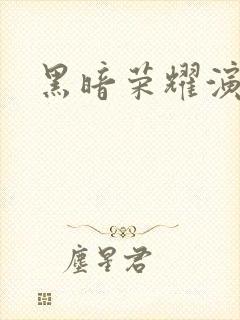 黑暗荣耀演
塵星君